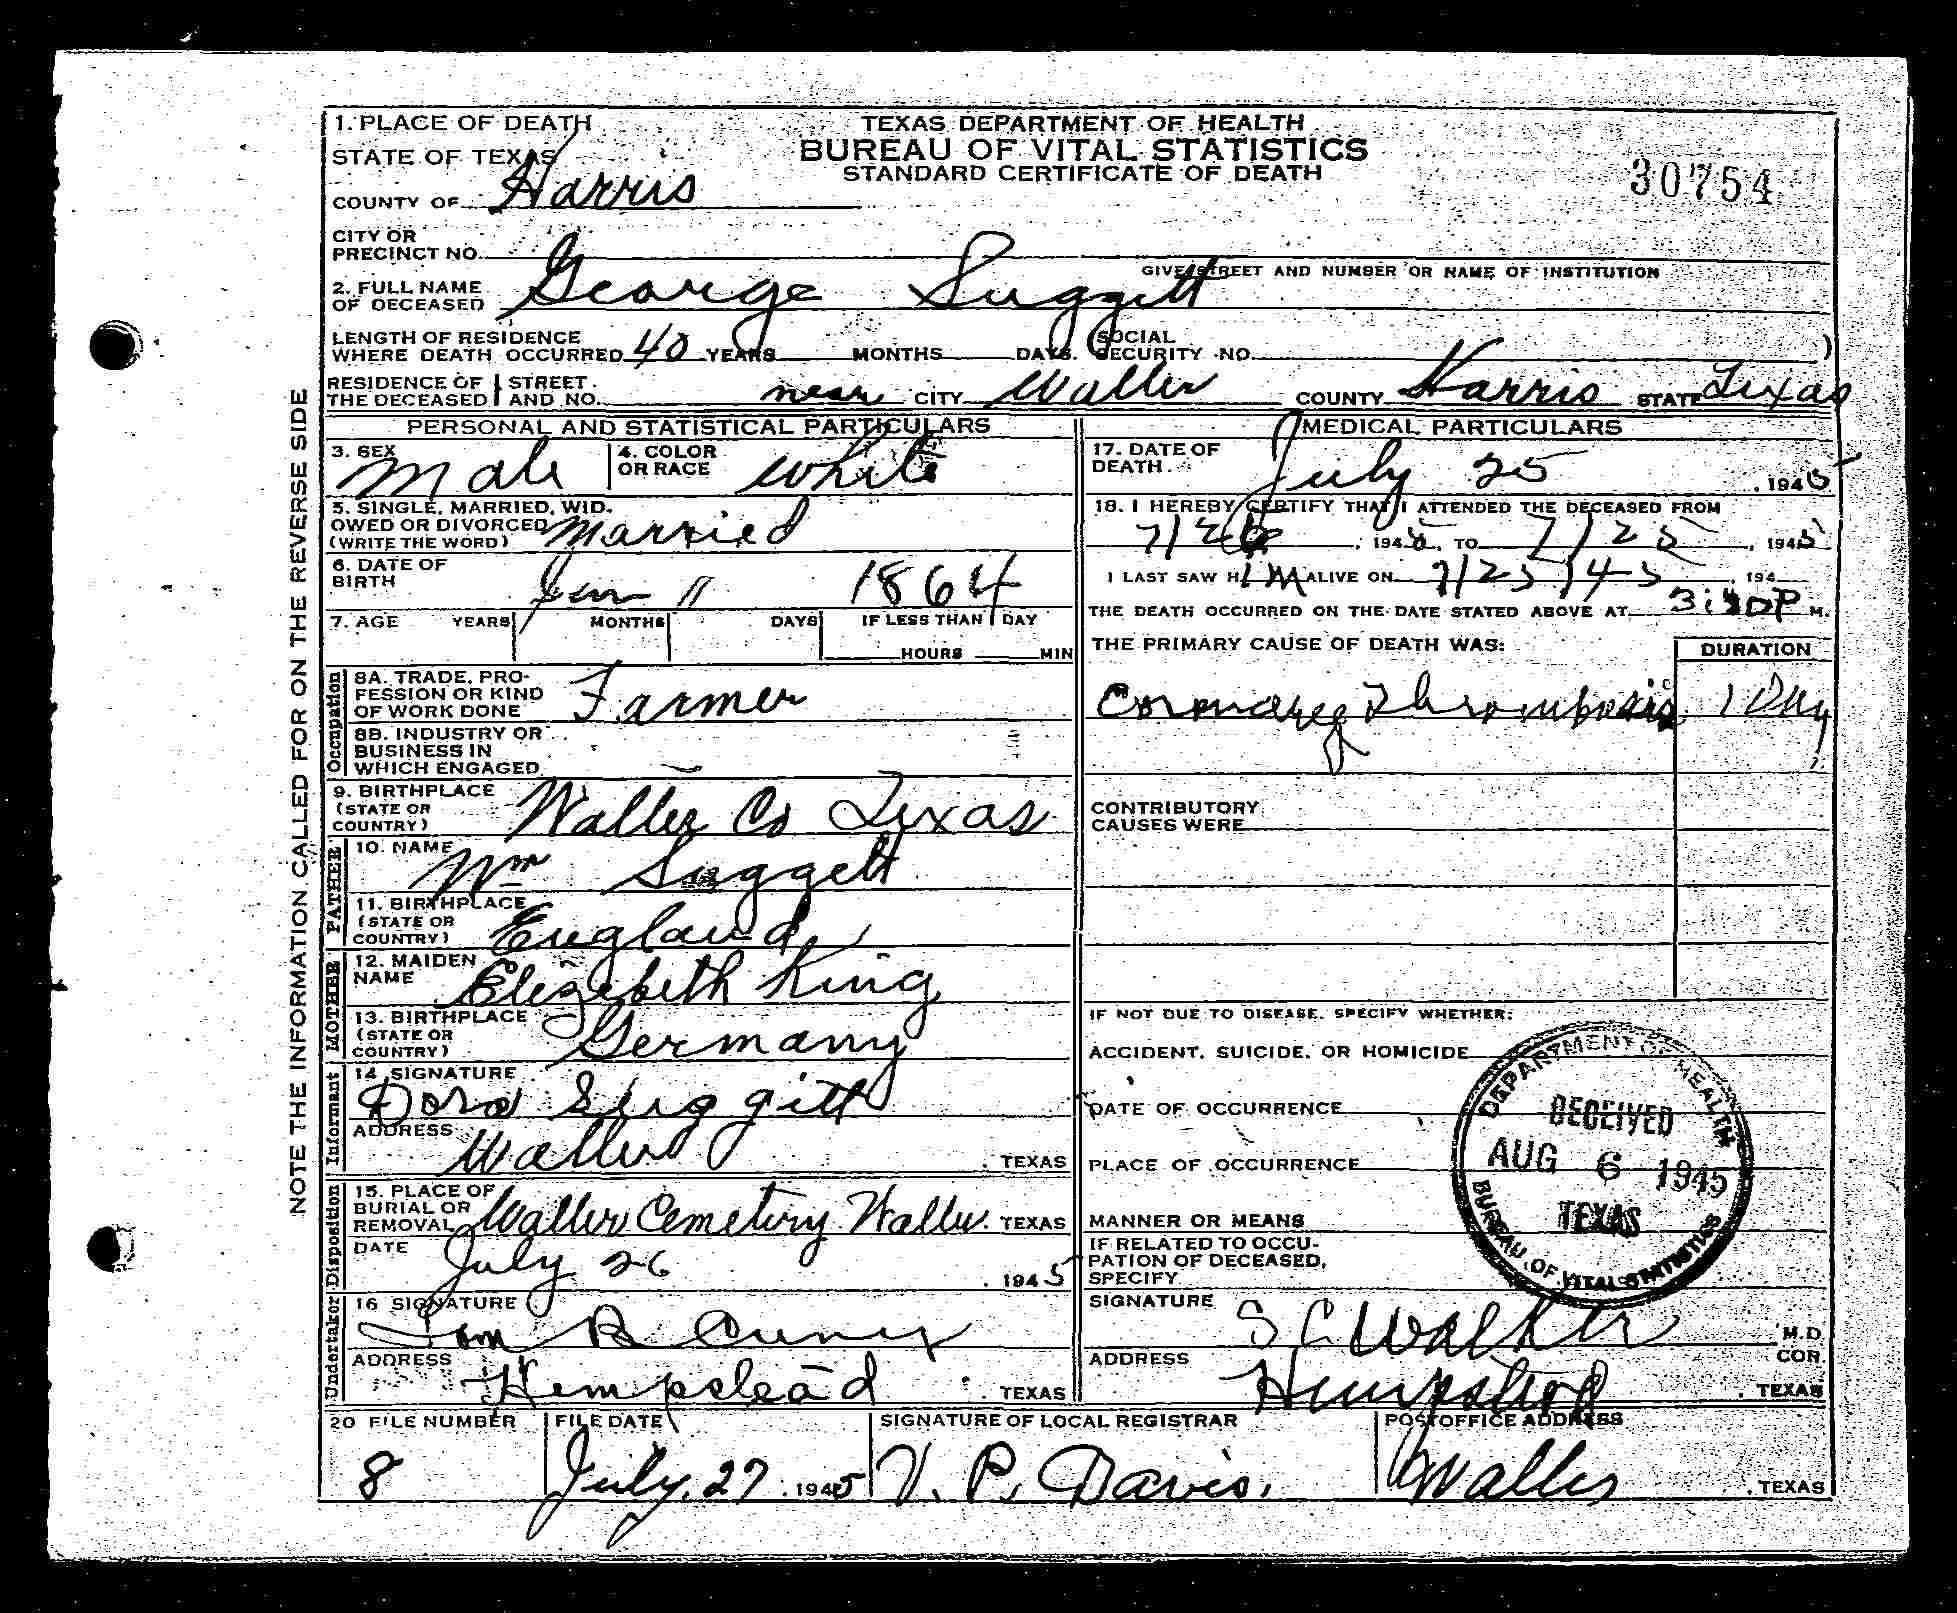 1. PLACE OF DEATH
STATE OF TEXAS
COUNTY OF Harris
CITY OR
PRECINCT NO.
TEXAS DEPARTMENT OF HEALTH
BUREAU OF VITAL STATISTICS
STANDARD CERTIFICATE OF DEATH
30754
GIVE STREET AND NUMBER OR NAME OF INSTITUTION
2. FULL NAME
OF DECEASED George Suggitt
LENGTH OF RESIDENCE
WHERE DEATH OCCURRED 40 YEARS MONTHS DAYS. (SOCIAL
SECURITY NO. )
RESIDENCE OF THE DECEASED STREET AND NO. near CITY Waller COUNTY Harris STATE Texas
NOTE THE INFORMATION CALLED FOR ON THE REVERSE SIDE
PERSONAL AND STATISTICAL PARTICULARS
3. SEX Male 4. COLOR OR RACE White
5. SINGLE, MARRIED, WID-
OWED OR DIVORCED
(WRITE THE WORD) Married
6. DATE OF
BIRTH Jan 11 1864
7. AGE YEARS MONTHS DAYS IF LESS THAN 1 DAY
HOURS MIN
Occupation
8A. TRADE, PRO-
FESSION OR KIND
OF WORK DONE Farmer
8B. INDUSTRY OR
BUSINESS IN
WHICH ENGAGED
9. BIRTHPLACE
(STATE OR
COUNTRY) Waller Co Texas
FATHER
10. NAME Wm Suggett
11. BIRTHPLACE
(STATE OR
COUNTRY) England
MOTHER
12. MAIDEN
NAME Elizebeth King
13. BIRTHPLACE
(STATE OR
COUNTRY) Germany
Informant
14. SIGNATURE
Dora Suggitt
ADDRESS Waller, TEXAS
Disposition
15. PLACE OF
BURIAL OR
REMOVAL Waller Cemetery Waller. TEXAS
DATE July 26, 1945
Undertaker
16 SIGNATURE
Tom B
ADDRESS
Hempstead, TEXAS
MEDICAL PARTICULARS
17. DATE OF
DEATH July 25, 1945
18. I HEREBY CERTIFY THAT I ATTENDED THE DECEASED FROM
1945, TO 7/25, 1945
I LAST SAW HIM ALIVE ON 7/25/45, 194
THE DEATH OCCURRED ON THE DATE STATED ABOVE AT P M.
THE PRIMARY CAUSE OF DEATH WAS: DURATION
Coronary Thrombosis 1 Day
CONTRIBUTORY
CAUSES WERE
IF NOT DUE TO DISEASE, SPECIFY WHETHER:
ACCIDENT, SUICIDE, OR HOMICIDE
DATE OF OCCURRENCE
PLACE OF OCCURRENCE
MANNER OR MEANS
IF RELATED TO OCCU-
PATION OF DECEASED,
SPECIFY
DEPARTMENT OF HEALTH
RECEIVED
AUG 6 1945
TEXAS
BUREAU OF VITAL STATISTICS
SIGNATURE S C Walker M.D.
COR.
ADDRESS Hempstead, TEXAS
20 FILE NUMBER FILE DATE SIGNATURE OF LOCAL REGISTRAR POSTOFFICE ADDRESS
8 July, 27, 1945 V. P. Davis. Waller, TEXAS